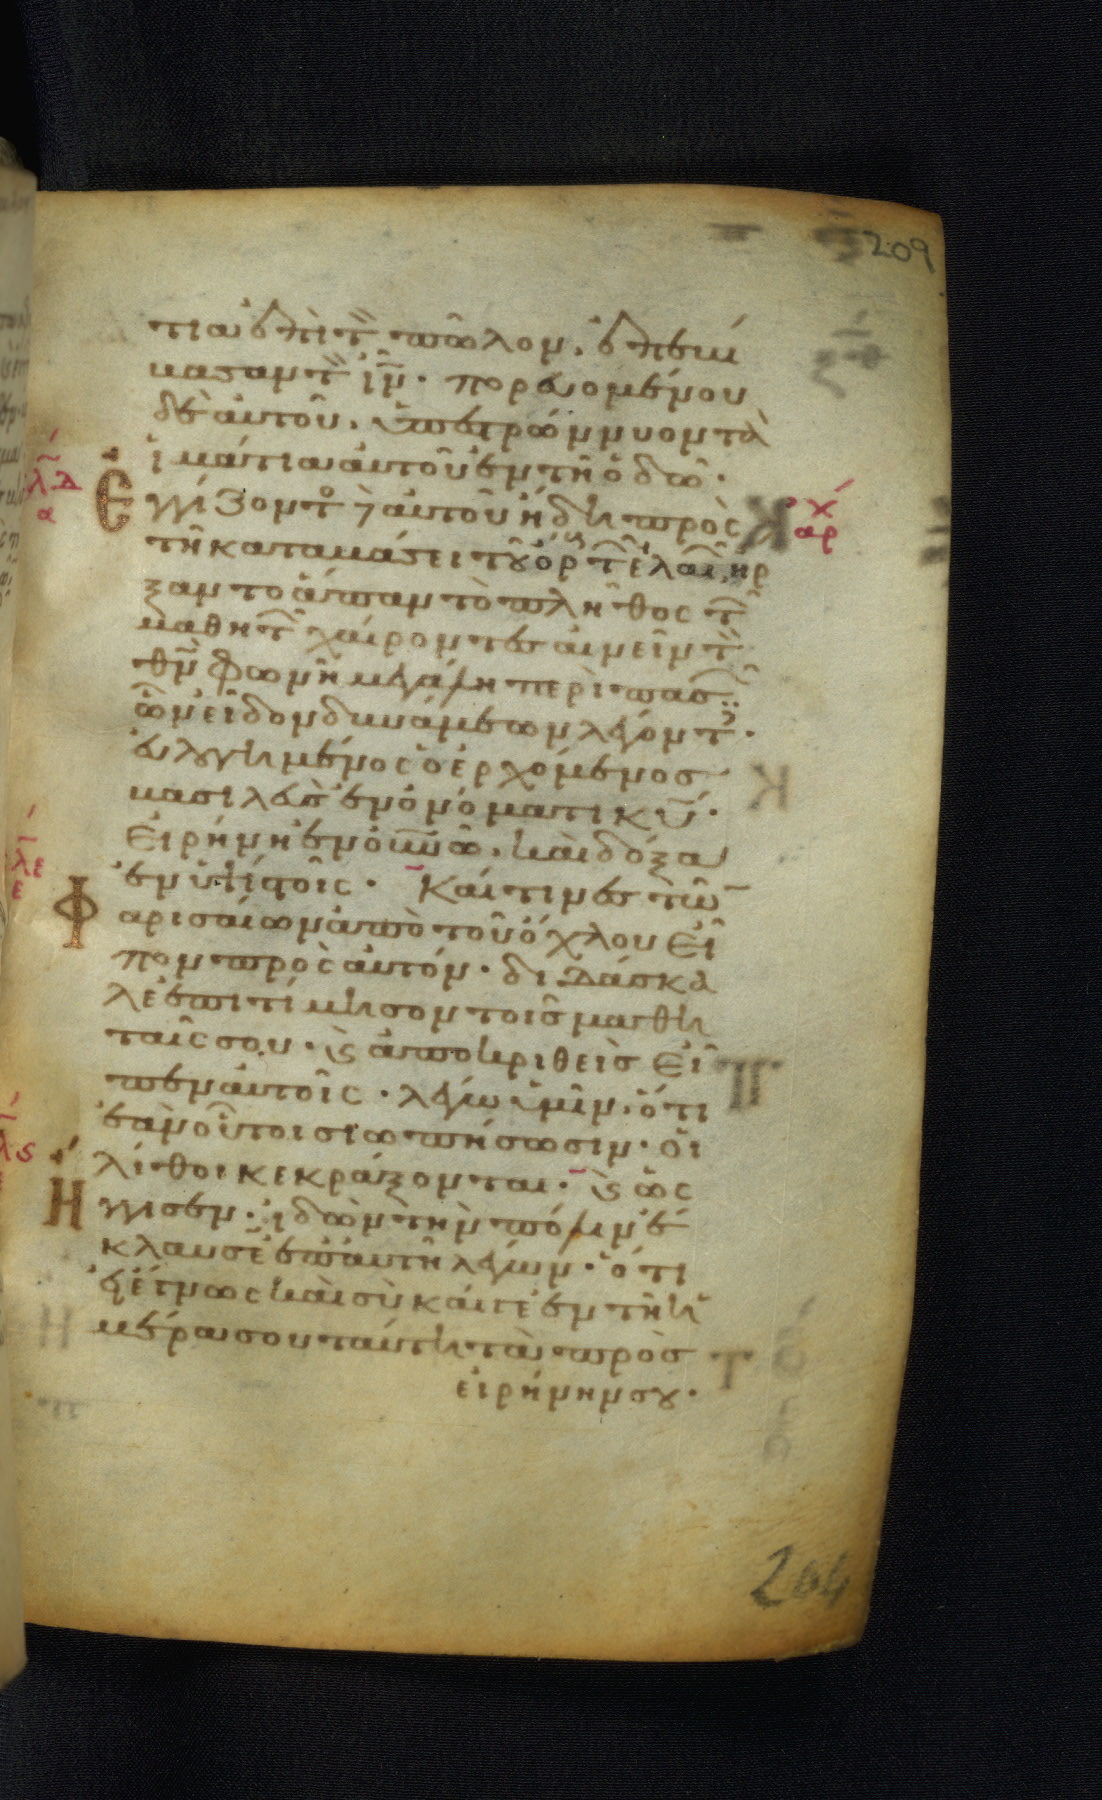 209
τια ἐπὶ τ̀ πῶλον, ἐπεβί
βασαν τ̀ ἰν̄· πορευομένου
δὲ αὐτοῦ, ὑπεστρώννυον τὰ
ἱμάτια αὐτοῦ ἐν τῆ ὁδῶ·
Ἐγγίζοντο δὲ αὐτοῦ ἤδη πρὸς
τῆ καταβάσει τοῦ ὄρ τῶν ἐλαιῶν, ἤρ
ξαντο ἅπαν τὸ πλῆθος τῶν
μαθητῶν χαίροντες αἰνεῖν τὸν
θν̄ φωνῆ μεγάλη περὶ πασῶν
ὧν εἶδον δυνάμεων λέγοντες·
εὐλογημένος ὁ ἐρχόμενος
βασιλεὺς ἐν ὀνόματι κῡ·
Εἰρήνη ἐν οὐνῶ, καὶ δόξα
ἐν ὑψίστοις· Καί τινες τῶν
Φαρισαίων ἀπὸ τοῦ ὄχλου εἶ
πον πρὸς αὐτόν· διδάσκα
λε ἐπιτίμησον τοῖς μαθη
ταῖς σου· κ̀ ἀποκριθεὶς εἶ
πεν αὐτοῖς· λέγω ὑμῖν, ὅτι
ἐὰν οὗτοι σιωπήσωσιν· οἱ
λίθοι κεκράξονται· κ̀ ὡς
Ἤγγισεν· ἰδὼν τὴν πόλιν ἔ
κλαυσεν ἐπ' αὐτῆ λέγων· ὅτι
εἰ ἔγνως καὶ σὺ καί γε ἐν τῆ ἡ
μέρα σου ταύτη τὰ πρὸς
εἰρήνην σου·
204